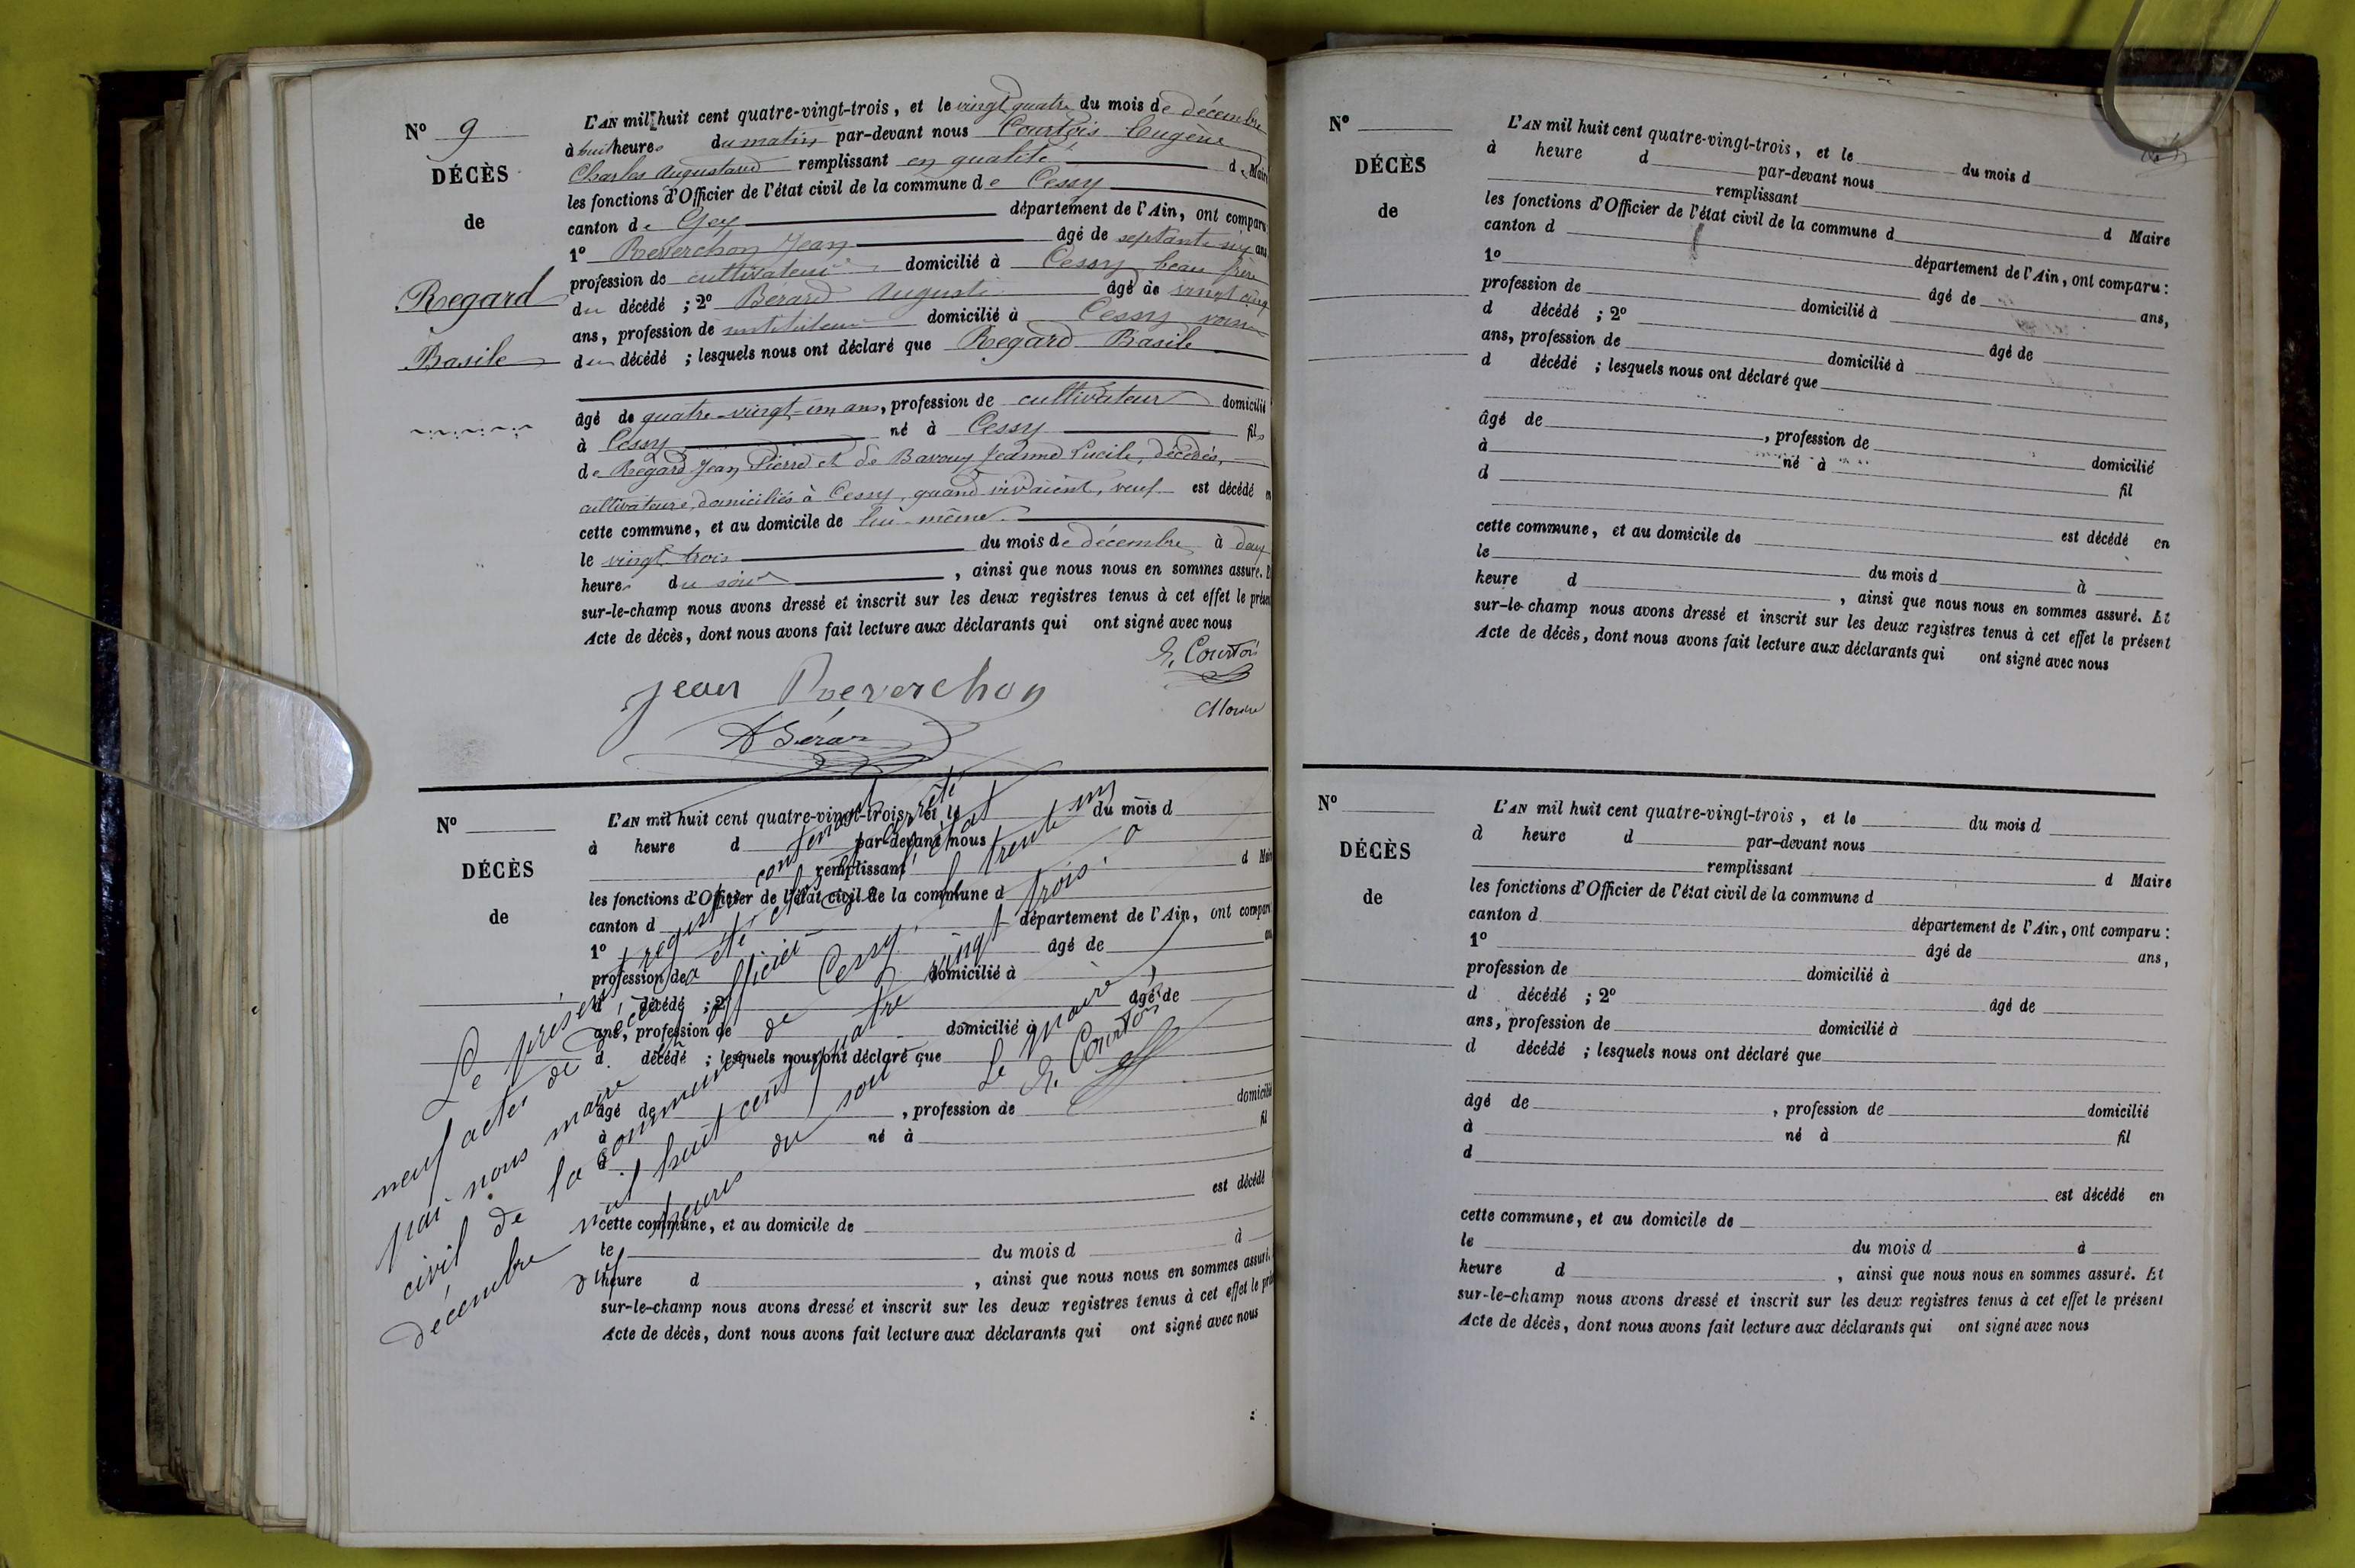 N° 9
DÉCÈS
de
Regard
Basile
L'AN mil huit cent quatre-vingt-trois, et le vingt quatre du mois de décembre
à huit heures du matin par-devant nous Courtois Eugène
Charles remplissant en qualité de Maire
les fonctions d'Officier de l'état civil de la commune de Cessy
canton de Gex département de l'Ain, ont comparu
1° Reverchon Jean âgé de septante six ans
profession de cultivateur domicilié à Cessy beau frère
du décédé ; 2° Bérard Auguste âgé de vingt cinq
ans, profession de instituteur domicilié à Cessy voisin
du décédé ; lesquels nous ont déclaré que Regard Basile
âgé de quatre-vingt-un ans, profession de cultivateur domicilié
à Cessy né à Cessy fils
de Regard Jean Pierre et de Bavoux Jeanne Lucile, décédés,
cultivateurs, domiciliés à Cessy, quand vivaient, veuf est décédé en
cette commune, et au domicile de lui-même
le vingt-trois du mois de décembre à deux
heures du soir, ainsi que nous nous en sommes assuré. Et
sur-le-champ nous avons dressé et inscrit sur les deux registres tenus à cet effet le présent
Acte de décès, dont nous avons fait lecture aux déclarants qui ont signé avec nous
E. Courtois
Jean Reverchon
ABérard
N°
DÉCÈS
de
L'AN mil huit cent quatre-vingt-trois, et le du mois d
à heure d par-devant nous
remplissant d Maire
les fonctions d'Officier de l'état civil de la commune d
canton d département de l'Ain, ont comparu
1° âgé de ans
profession de domicilié à
d décédé ; 2° âgé de
ans, profession de domicilié à
d décédé ; lesquels nous ont déclaré que
âgé de , profession de domicilié
à né à fil
d
est décédé
cette commune, et au domicile de
le du mois d à
heure d , ainsi que nous nous en sommes assuré.
sur-le-champ nous avons dressé et inscrit sur les deux registres tenus à cet effet le présent
Acte de décès, dont nous avons fait lecture aux déclarants qui ont signé avec nous
Le présent registre contenant
neuf actes de décès a été clos et arrêté
par nous maire officier de l'état
civil de la commune de Cessy le trente un
décembre mil huit cent quatre vingt trois à
heures du soir
Le maire,
E. Courtois
N°
DÉCÈS
de
L'AN mil huit cent quatre-vingt-trois, et le du mois d
à heure d par-devant nous
remplissant d Maire
les fonctions d'Officier de l'état civil de la commune d
canton d département de l'Ain, ont comparu :
1° âgé de ans,
profession de domicilié à
d décédé ; 2° âgé de
ans, profession de domicilié à
d décédé ; lesquels nous ont déclaré que
âgé de , profession de domicilié
à né à fil
d
est décédé en
cette commune, et au domicile de
le du mois d à
heure d , ainsi que nous nous en sommes assuré. Et
sur-le-champ nous avons dressé et inscrit sur les deux registres tenus à cet effet le présent
Acte de décès, dont nous avons fait lecture aux déclarants qui ont signé avec nous
N°
DÉCÈS
de
L'AN mil huit cent quatre-vingt-trois, et le du mois d
à heure d par-devant nous
remplissant d Maire
les fonctions d'Officier de l'état civil de la commune d
canton d département de l'Ain, ont comparu :
1° âgé de ans,
profession de domicilié à
d décédé ; 2° âgé de
ans, profession de domicilié à
d décédé ; lesquels nous ont déclaré que
âgé de , profession de domicilié
à né à fil
d
est décédé en
cette commune, et au domicile de
le du mois d à
heure d , ainsi que nous nous en sommes assuré. Et
sur-le-champ nous avons dressé et inscrit sur les deux registres tenus à cet effet le présent
Acte de décès, dont nous avons fait lecture aux déclarants qui ont signé avec nous